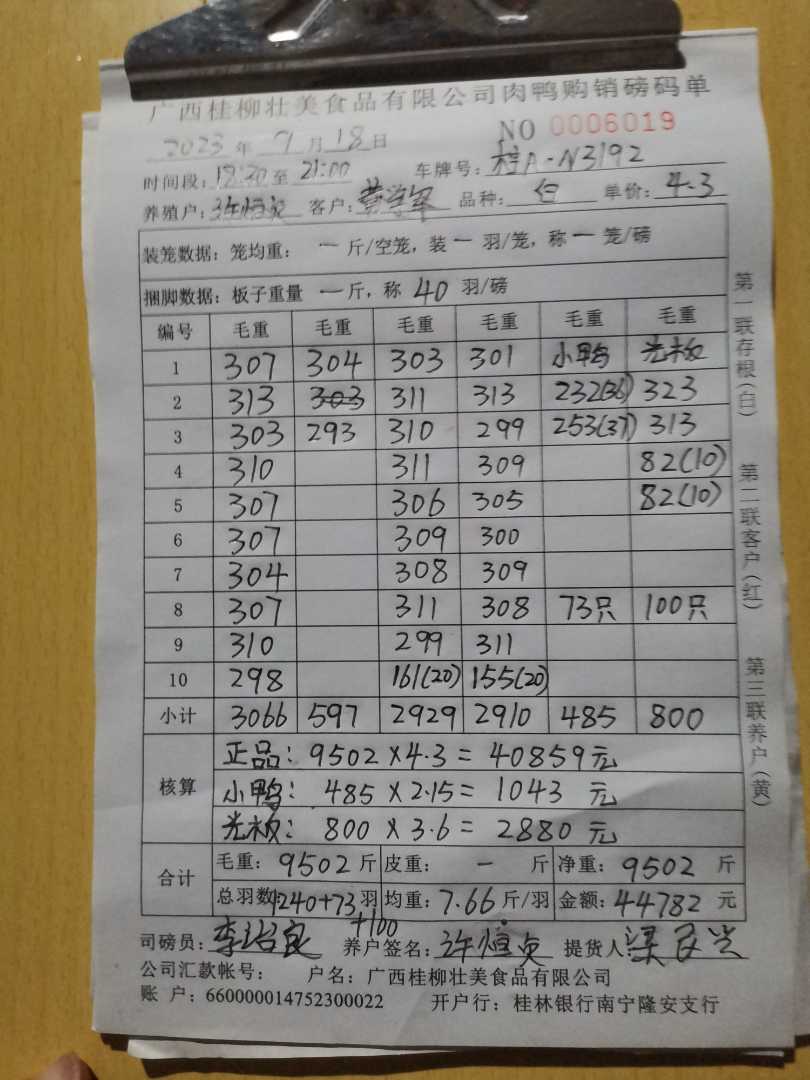 广西桂柳壮美食品有限公司肉鸭购销磅码单
NO 0006019
2023 年 9 月 18 日
时间段: 18:20 至 21:00 车牌号: 桂A-N3192
养殖户: 许恒贞 客户: 黄学军 品种: 白 单价: 4.3
装笼数据: 笼均重: 一 斤/空笼, 装 一 羽/笼, 称 一 笼/磅
捆脚数据: 板子重量 一 斤, 称 40 羽/磅
编号 毛重 毛重 毛重 毛重 毛重 毛重
1 307 304 303 301 小鸭 光板
2 313 303 311 313 232(36) 323
3 303 293 310 299 253(37) 313
4 310 311 309 82(10)
5 307 306 305 82(10)
6 307 309 300
7 304 308 309
8 307 311 308 73只 100只
9 310 299 311
10 298 161(20) 155(20)
小计 3066 597 2929 2910 485 800
核算
正品: 9502×4.3=40859元
小鸭: 485×2.15=1043 元
光板: 800×3.6=2880 元
合计
毛重: 9502 斤 皮重: 一 斤 净重: 9502 斤
总羽数: 1240+73 羽 均重: 7.66 斤/羽 金额: 44782 元
+100
司磅员: 养户签名: 许恒贞 提货人:
公司汇款帐号: 户名: 广西桂柳壮美食品有限公司
账 户: 660000014752300022 开户行: 桂林银行南宁隆安支行
第一联存根(白) 第二联客户(红) 第三联养户(黄)